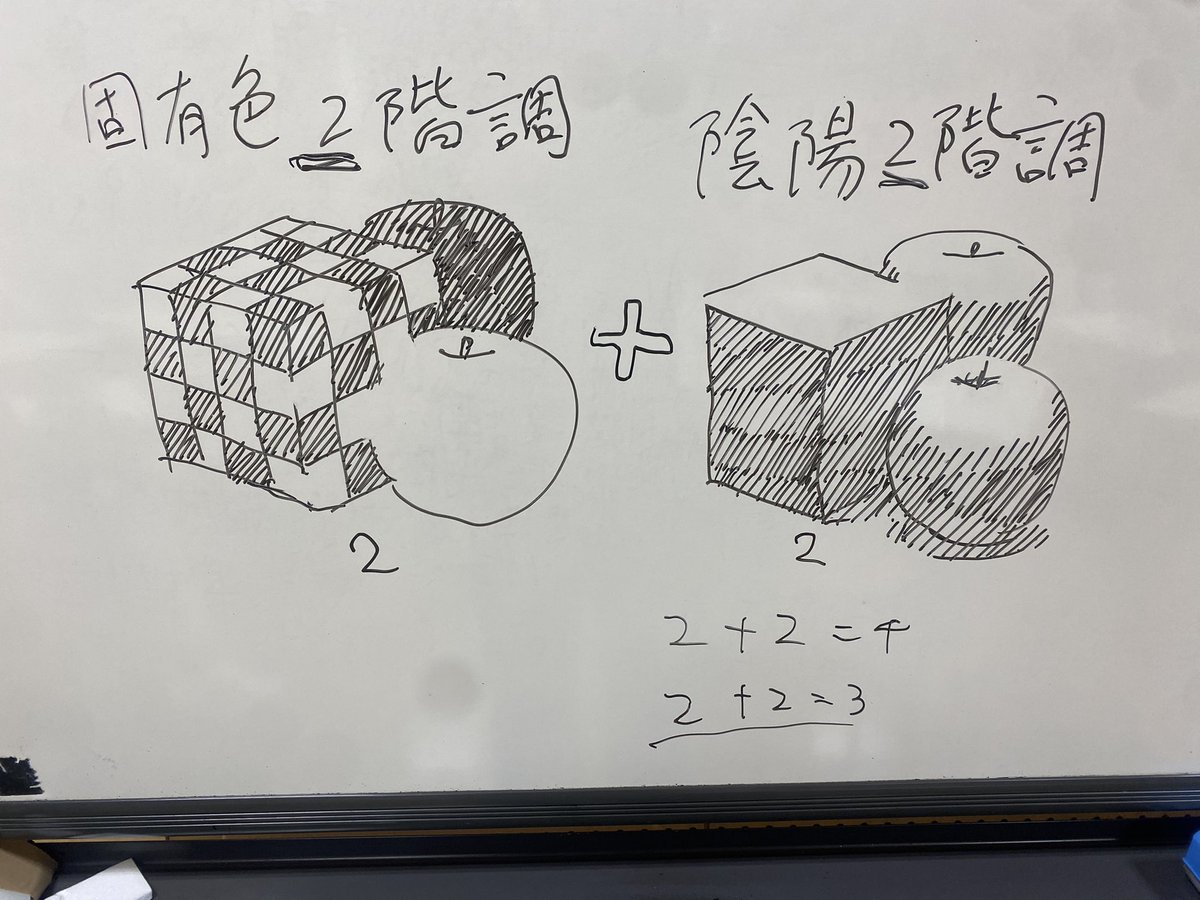 固有色2階調
陰陽2階調
+
2
2
2+2=4
2+2=3